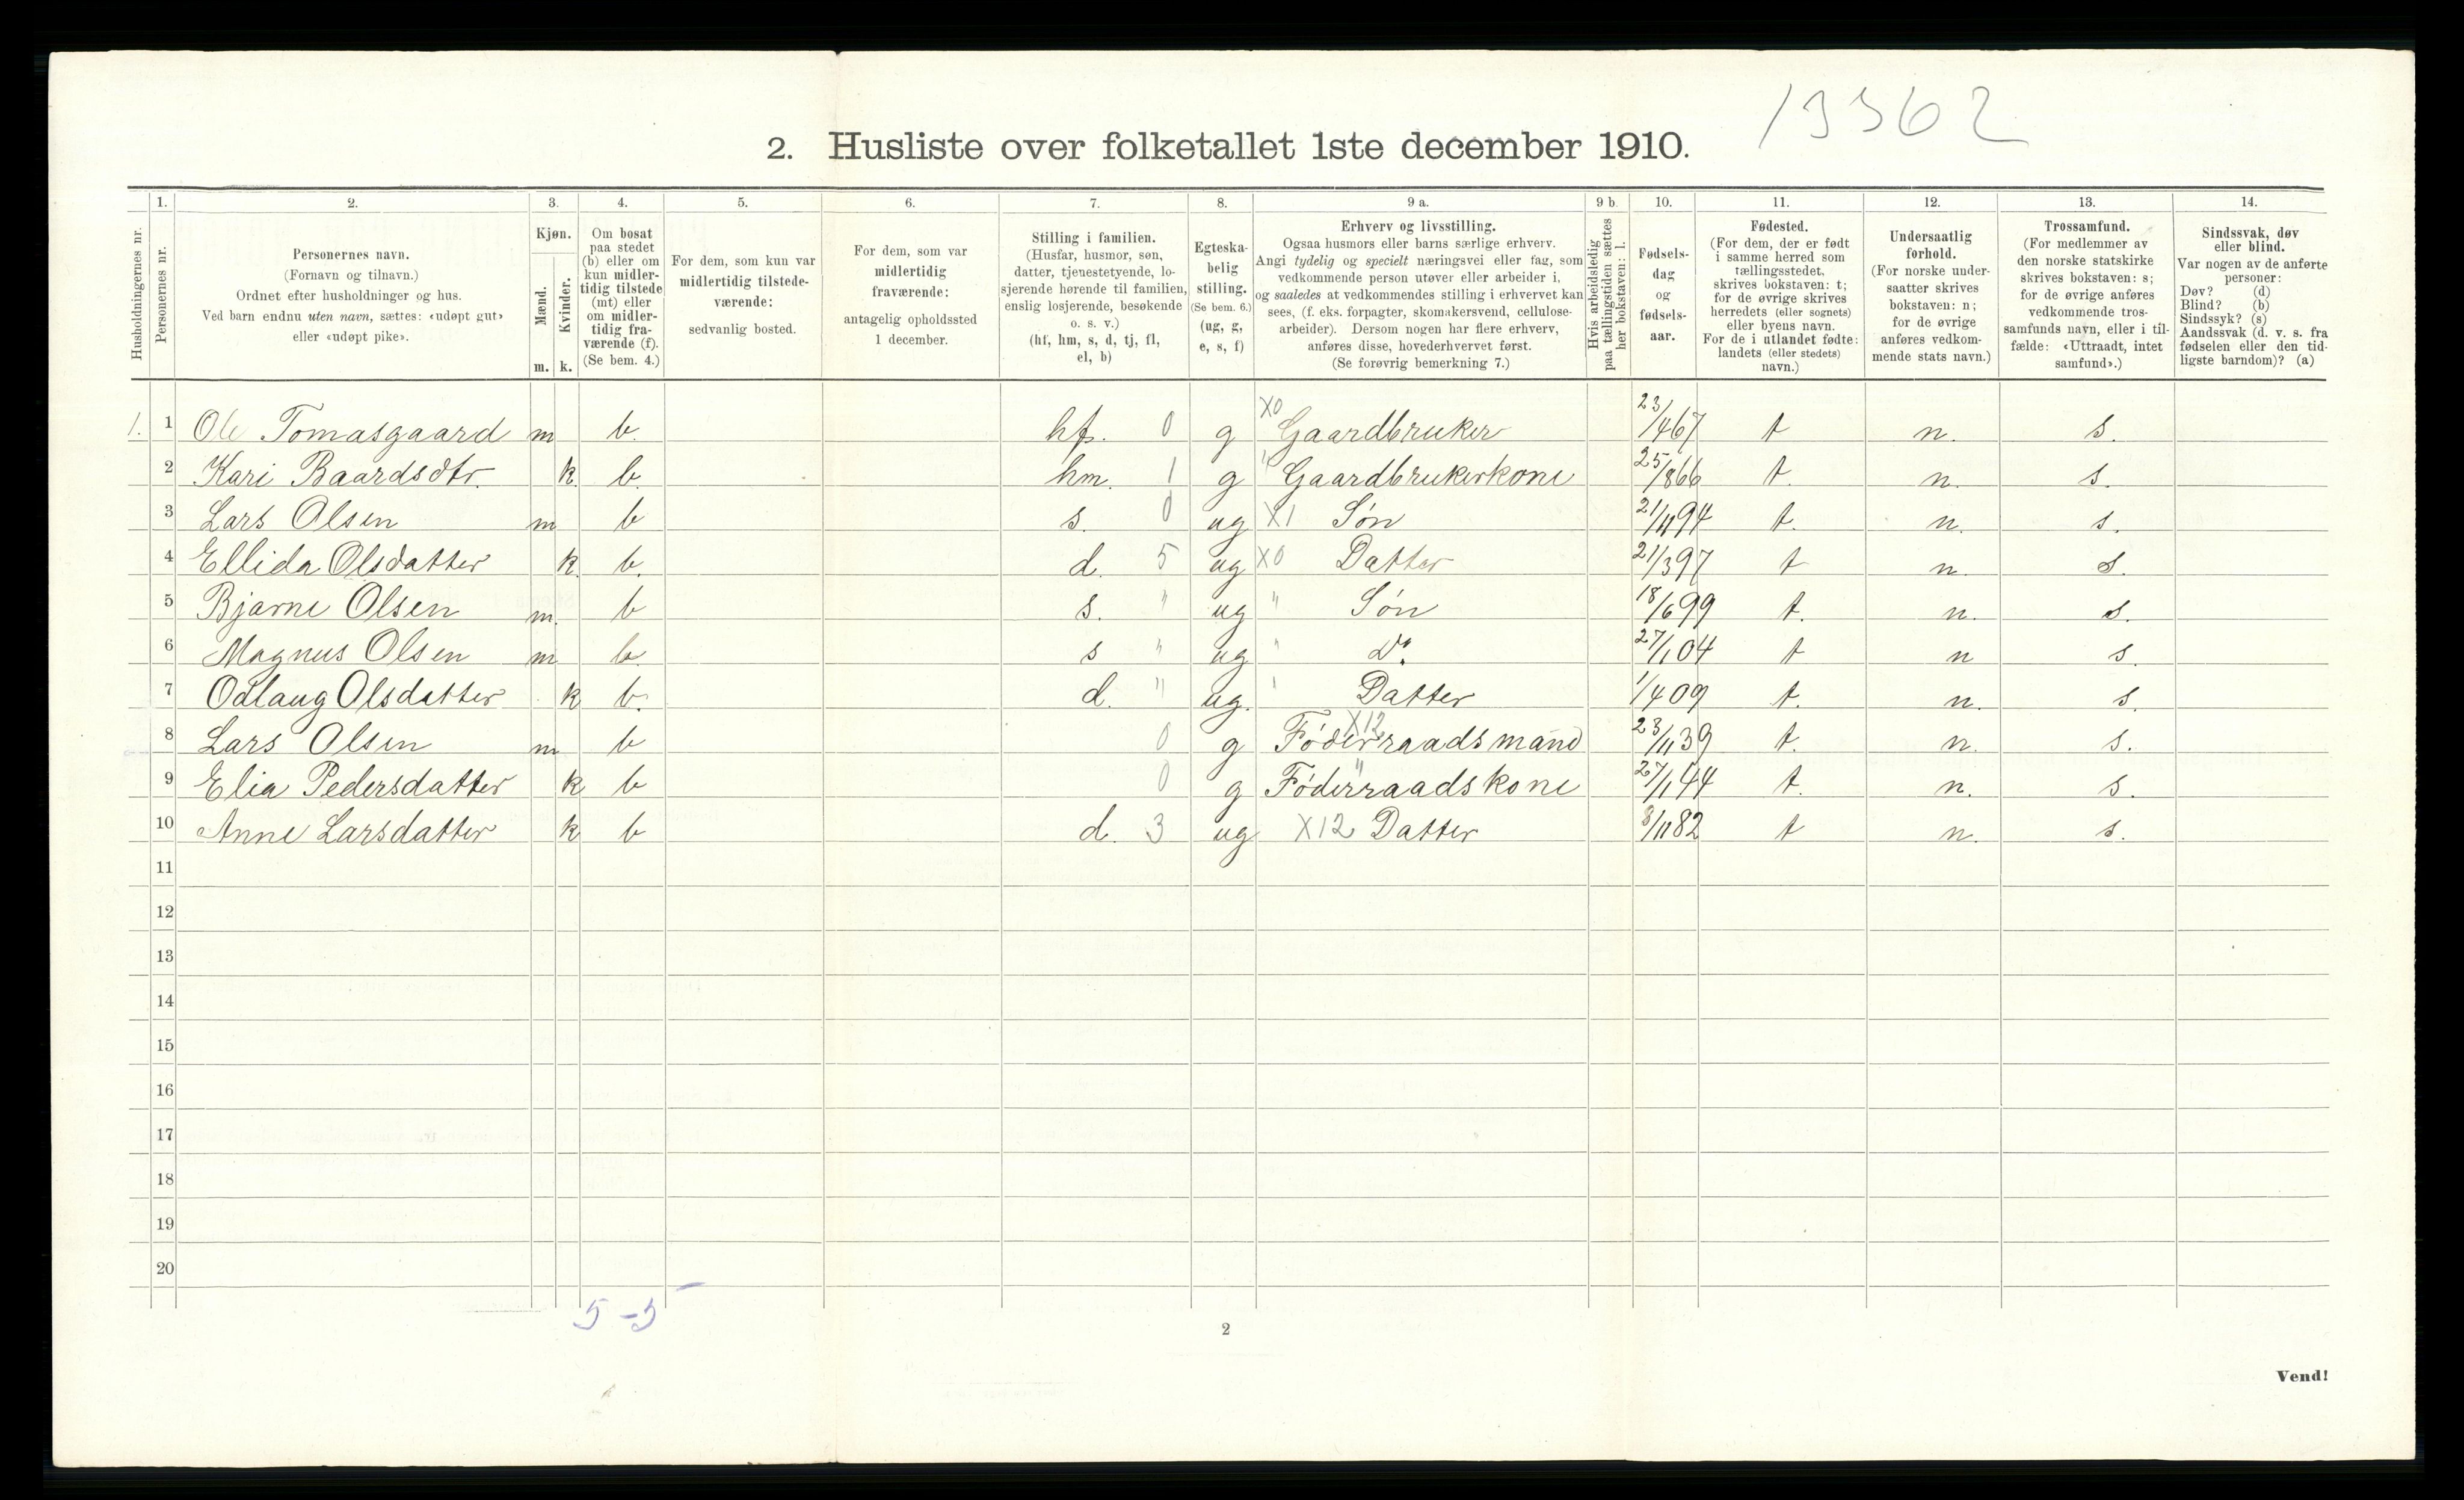 13362
2. Husliste over folketallet 1ste december 1910.
1. 2. 3. 4. 5. 6. 7. 8. 9 a. 9 b. 10. 11. 12. 13. 14.
Husholdningernes nr.
Personernes nr.
Personernes navn.
(Fornavn og tilnavn.)
Ordnet efter husholdninger og hus.
Ved barn endnu uten navn, sættes: «udøpt gut»
eller «udøpt pike».
Kjøn.
Mænd.
Kvinder.
m. k.
Om bosat
paa stedet
(b) eller om
kun midler-
tidig tilstede
(mt) eller
om midler-
tidig fra-
værende (f).
(Se bem. 4.)
For dem, som kun var
midlertidig tilstede-
værende:
sedvanlig bosted.
For dem, som var
midlertidig
fraværende:
antagelig opholdssted
1 december.
Stilling i familien.
(Husfar, husmor, søn,
datter, tjenestetyende, lo-
sjerende hørende til familien,
enslig losjerende, besøkende
o. s. v.)
(hf, hm, s, d, tj, fl,
el, b)
Egteska-
belig
stilling.
(Se bem. 6.)
(ug, g,
e, s, f)
Erhverv og livsstilling.
Ogsaa husmors eller barns særlige erhverv.
Angi tydelig og specielt næringsvei eller fag, som
vedkommende person utøver eller arbeider i,
og saaledes at vedkommendes stilling i erhvervet kan
sees, (f. eks. forpagter, skomakersvend, cellulose-
arbeider). Dersom nogen har flere erhverv,
anføres disse, hovederhvervet først.
(Se forøvrig bemerkning 7.)
Hvis arbeidsledig
paa tællingstiden sættes
her bokstaven: l.
Fødsels-
dag
og
fødsels-
aar.
Fødested.
(For dem, der er født
i samme herred som
tællingsstedet,
skrives bokstaven: t;
for de øvrige skrives
herredets (eller sognets)
eller byens navn.
For de i utlandet fødte:
landets (eller stedets)
navn.)
Undersaatlig
forhold.
(For norske under-
saatter skrives
bokstaven: n;
for de øvrige
anføres vedkom-
mende stats navn.)
Trossamfund.
(For medlemmer av
den norske statskirke
skrives bokstaven: s;
for de øvrige anføres
vedkommende tros-
samfunds navn, eller i til-
fælde: «Uttraadt, intet
samfund».)
Sindssvak, døv
eller blind.
Var nogen av de anførte
personer:
Døv? (d)
Blind? (b)
Sindssyk? (s)
Aandssvak (d. v. s. fra
fødselen eller den tid-
ligste barndom)? (a)
1. 1 Ole Tomasgaard m b. hf. 0 g X0 Gaardbruker 23/4 67 t n. s.
2 Kari Baardsdtr. k. b. hm. 1 g " Gaardbrukerkone 25/8 66 t. n. s.
3 Lars Olsen m b s. 0 ug X1 Søn 21/11 94 t. n. s.
4 Ellida Olsdatter k. b. d. 5 ug X0 Datter 21/3 97 t n. s.
5 Bjarne Olsen m. b s. " ug " Søn 18/6 99 t. n. s.
6 Magnus Olsen m b. s " ug " Do. 27/1 04 t n s.
7 Odlaug Olsdatter k b. d. " ug. " Datter 1/4 09 t. n. s.
8 Lars Olsen m b 0 g X12 Føderraadsmand 23/11 39 t. n. s.
9 Elia Pedersdatter k b 0 g " Føderraadskone 27/1 44 t. n. s.
10 Anne Larsdatter k b d. 3 ug X12 Datter 8/11 82 t n. s.
11
12
13
14
15
16
17
18
19
20
5 - 5
2
Vend!